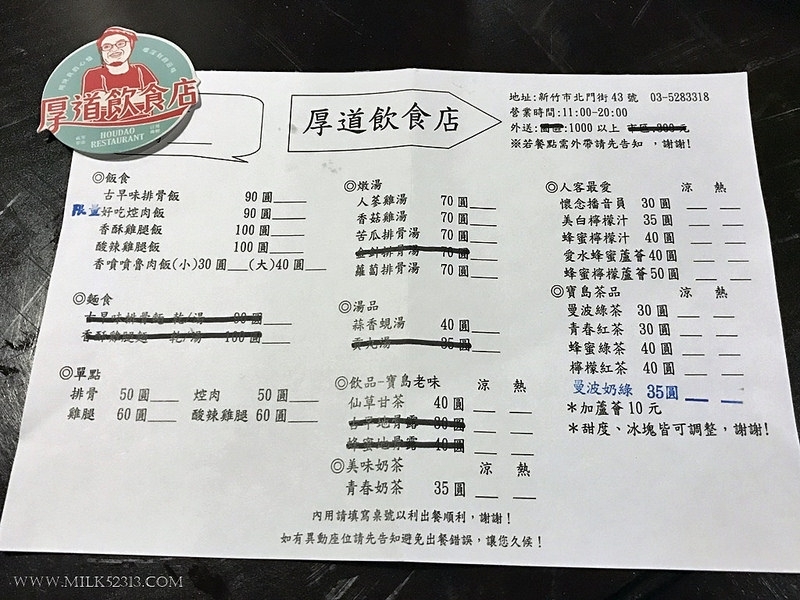 厚道飲食店
HOUDAO
RESTAURANT
厚道飲食店
地址:新竹市北門街43號 03-5283318
營業時間:11:00-20:00
外送:1000以上
※若餐點需外帶請先告知,謝謝!
◎飯食
古早味排骨飯 90圓
限量好吃焢肉飯 90圓
香酥雞腿飯 100圓
酸辣雞腿飯 100圓
香噴噴魯肉飯(小)30圓 (大)40圓
◎麵食
古早味排骨麵 乾/湯 90圓
香酥雞腿麵 乾/湯 100圓
◎單點
排骨 50圓 焢肉 50圓
雞腿 60圓 酸辣雞腿 60圓
◎燉湯
人蔘雞湯 70圓
香菇雞湯 70圓
苦瓜排骨湯 70圓
金針排骨湯 70圓
蘿蔔排骨湯 70圓
◎湯品
蒜香蜆湯 40圓
貢丸湯 35圓
◎飲品-寶島老味 涼 熱
仙草甘茶 40圓
古早地骨露 30圓
蜂蜜地骨露 40圓
◎美味奶茶 涼 熱
青春奶茶 35圓
◎人客最愛 涼 熱
懷念播音員 30圓
美白檸檬汁 35圓
蜂蜜檸檬汁 40圓
愛水蜂蜜蘆薈40圓
蜂蜜檸檬蘆薈50圓
◎寶島茶品 涼 熱
曼波綠茶 30圓
青春紅茶 30圓
蜂蜜綠茶 40圓
檸檬紅茶 40圓
曼波奶綠 35圓
*加蘆薈10元
*甜度、冰塊皆可調整,謝謝!
內用請填寫桌號以利出餐順利,謝謝!
如有異動座位請先告知避免出餐錯誤,讓您久候!
WWW.MILK52313.COM